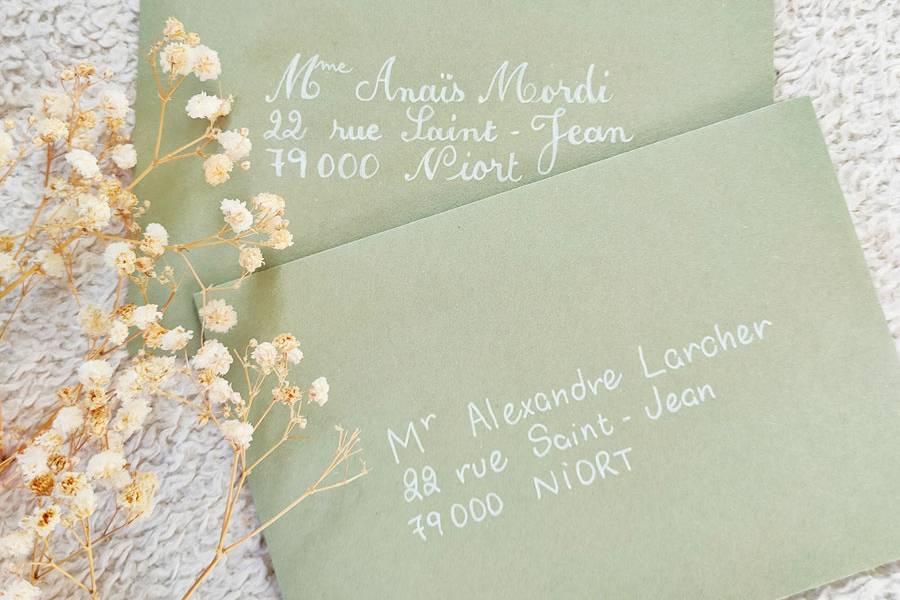 Mme Anaïs Mordi
22 rue Saint-Jean
79000 Niort
Mr Alexandre Larcher
22 rue Saint-Jean
79000 NiORT